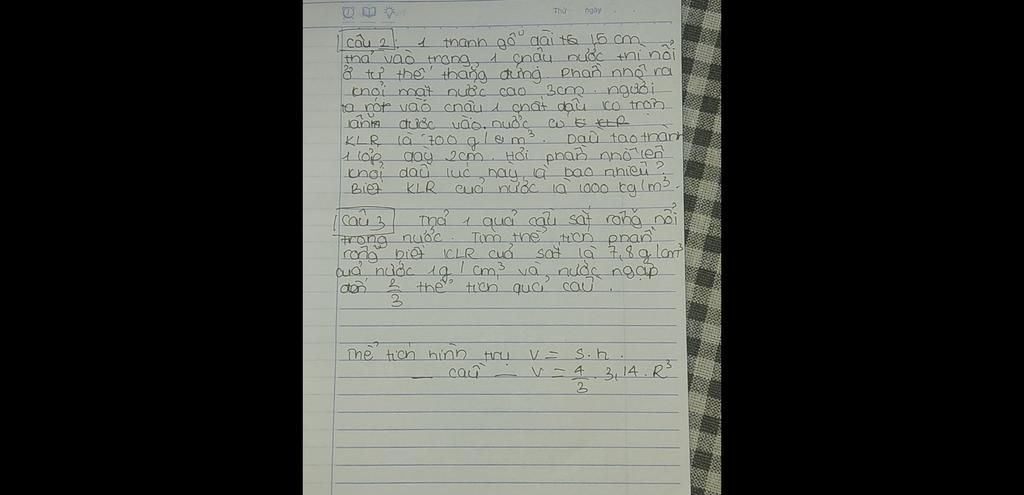 Thứ ngày
Câu 2: 1 thanh gỗ dài 15 cm
thả vào trong 1 chậu nước thì nổi
ở tư thế thẳng đứng. Phần nhô ra
khỏi mặt nước cao 3cm. người
ta rót vào chậu 1 chất dầu ko trộn
lẫn được vào nước có
KLR là 700 g/m³. Dầu tạo thành
1 lớp dày 2cm. Hỏi phần nhô lên
khỏi dầu lúc này là bao nhiêu?
Biết KLR của nước là 1000 kg/m³.
Câu 3 Thả 1 quả cầu sắt rỗng nổi
trong nước. Tìm thể tích phần
rỗng biết KLR của sắt là 7,8g/cm³
của nước 1g/cm³ và nước ngập
đến 2/3 thể tích quả cầu.
Thể tích hình trụ V = S.h.
— cầu — V = 4/3 . 3,14 . R³